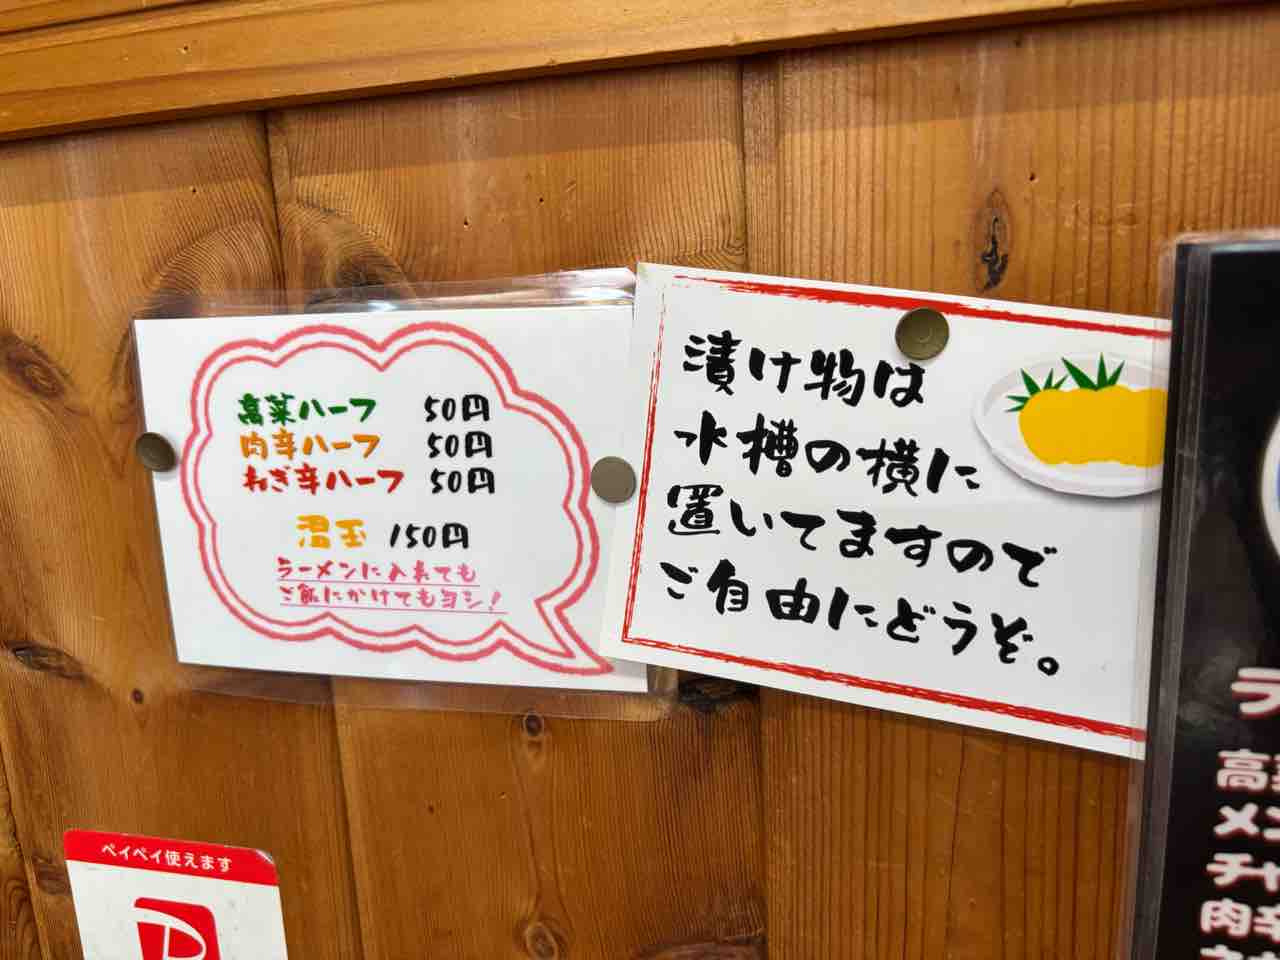 高菜ハーフ 50円
肉辛ハーフ 50円
ねぎ辛ハーフ 50円
温玉 150円
ラーメンに入れても
ご飯にかけてもヨシ!
漬け物は
水槽の横に
置いてますので
ご自由にどうぞ。
ペイペイ使えます
ラ
高
メン
チャ
肉辛